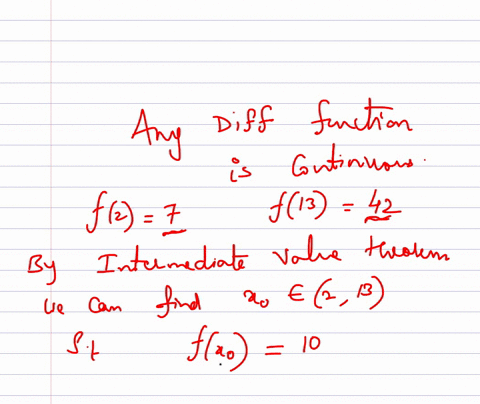 Any Diff function
is Continuous.
f(2) = 7 f(13) = 42
By Intermediate value theorem
we can find x₀ ∈ (2, 13)
S.t f(x₀) = 10